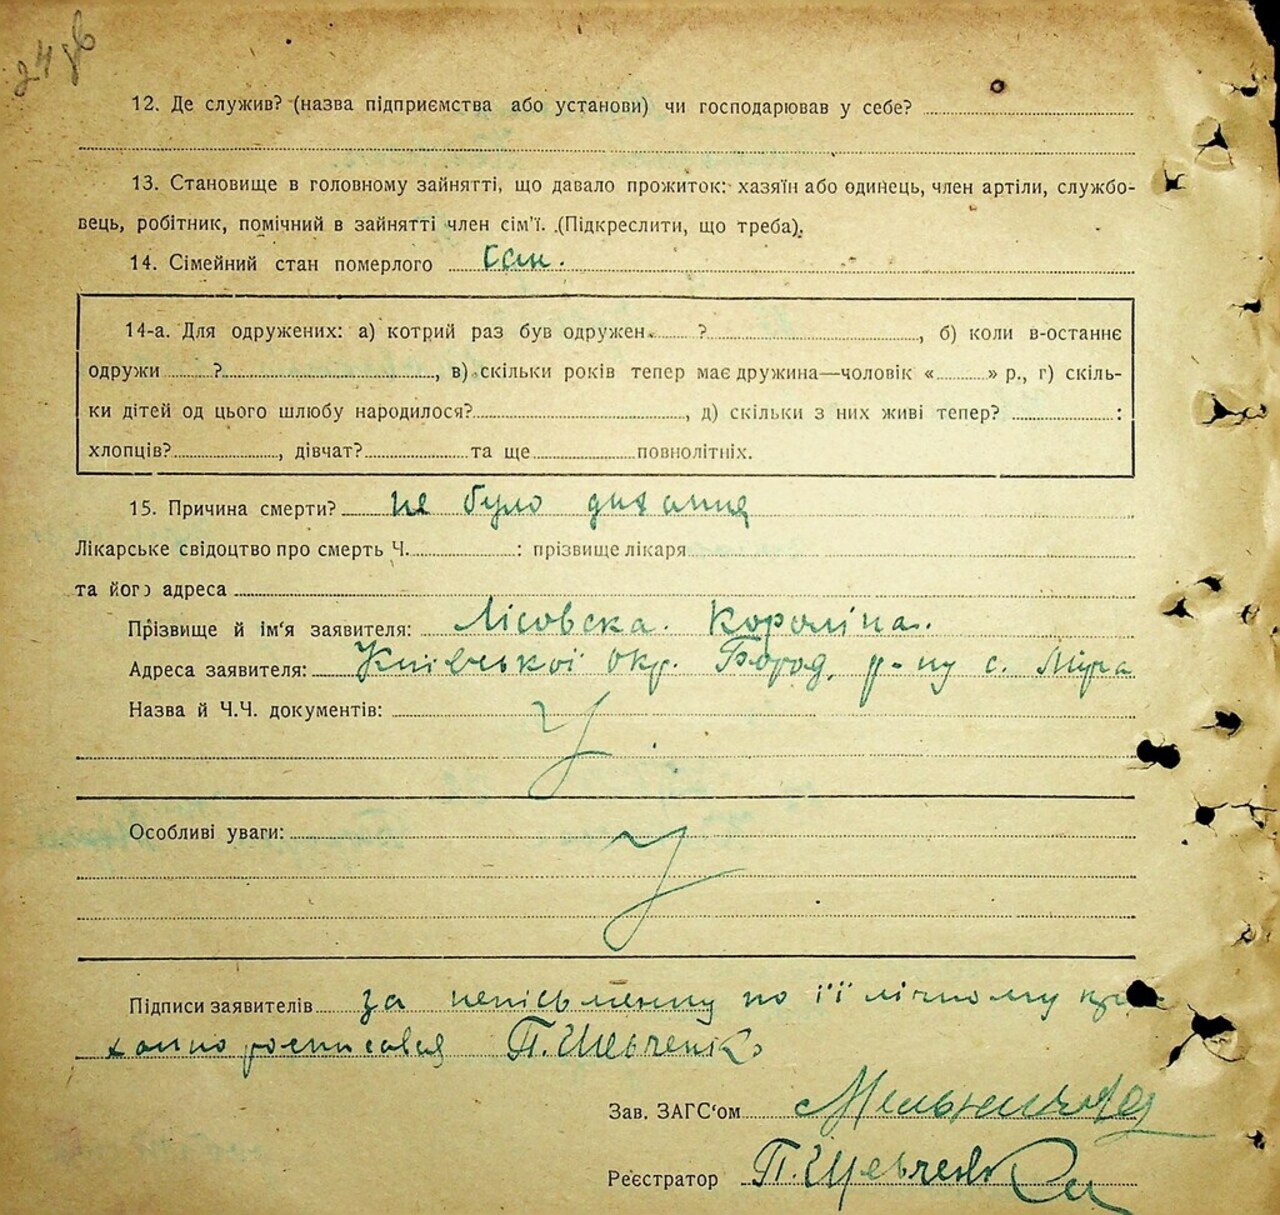 24 зв
12. Де служив? (назва підприємства або установи) чи господарював у себе?
13. Становище в головному зайнятті, що давало прожиток: хазяїн або одинець, член артілі, службо-
вець, робітник, помічний в зайнятті член сім'ї. (Підкреслити, що треба).
14. Сімейний стан померлого
14-а. Для одружених: а) котрий раз був одружен ?, б) коли в-останнє
одружи ?, в) скільки років тепер має дружина—чоловік « » р., г) скіль-
ки дітей од цього шлюбу народилося?, д) скільки з них живі тепер? :
хлопців?, дівчат? та ще повнолітніх.
15. Причина смерти? не було дихання
Лікарське свідоцтво про смерть Ч. : прізвище лікаря
та його адреса
Прізвище й ім'я заявителя: Лісовська. Короліна.
Адреса заявителя: Київської окр. Бород. р-ну с. Міра
Назва й Ч.Ч. документів:
Особливі уваги:
Підписи заявителів за неписьменну по її лічному
росписався П. Шевченко
Зав. ЗАГС'ом Мельникова
Реєстратор П. Шевченко